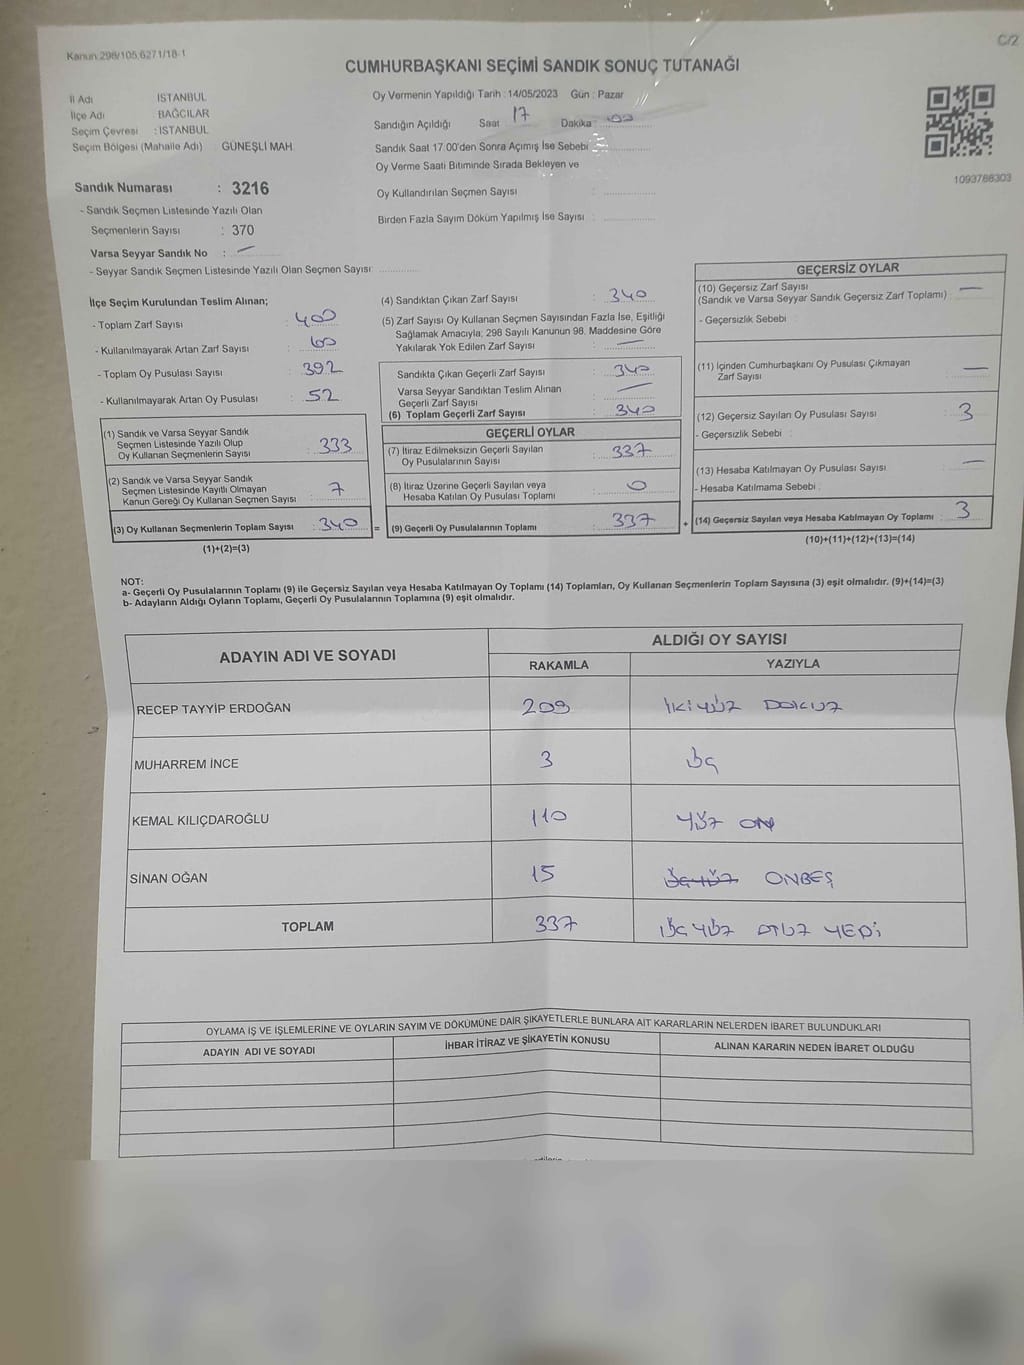 Kanun:298/105,6271/18-1
C/2
CUMHURBAŞKANI SEÇİMİ SANDIK SONUÇ TUTANAĞI
İl Adı İSTANBUL
İlçe Adı BAĞCILAR
Seçim Çevresi : İSTANBUL
Seçim Bölgesi (Mahalle Adı) : GÜNEŞLİ MAH.
Oy Vermenin Yapıldığı Tarih : 14/05/2023 Gün : Pazar
Sandığın Açıldığı Saat 17 Dakika : 00
Sandık Saat 17:00'den Sonra Açımış İse Sebebi :
Oy Verme Saati Bitiminde Sırada Bekleyen ve
Oy Kullandırılan Seçmen Sayısı :
Birden Fazla Sayım Döküm Yapılmış İse Sayısı :
1093788303
Sandık Numarası : 3216
- Sandık Seçmen Listesinde Yazılı Olan
Seçmenlerin Sayısı : 370
Varsa Seyyar Sandık No : —
- Seyyar Sandık Seçmen Listesinde Yazılı Olan Seçmen Sayısı:
İlçe Seçim Kurulundan Teslim Alınan;
- Toplam Zarf Sayısı : 400
- Kullanılmayarak Artan Zarf Sayısı : 60
- Toplam Oy Pusulası Sayısı : 392
- Kullanılmayarak Artan Oy Pusulası : 52
(1) Sandık ve Varsa Seyyar Sandık
Seçmen Listesinde Yazılı Olup
Oy Kullanan Seçmenlerin Sayısı : 333
(2) Sandık ve Varsa Seyyar Sandık
Seçmen Listesinde Kayıtlı Olmayan
Kanun Gereği Oy Kullanan Seçmen Sayısı : 7
(3) Oy Kullanan Seçmenlerin Toplam Sayısı : 340 =
(1)+(2)=(3)
(4) Sandıktan Çıkan Zarf Sayısı : 340
(5) Zarf Sayısı Oy Kullanan Seçmen Sayısından Fazla İse, Eşitliği
Sağlamak Amacıyla, 298 Sayılı Kanunun 98. Maddesine Göre
Yakılarak Yok Edilen Zarf Sayısı : —
Sandıkta Çıkan Geçerli Zarf Sayısı : 340
Varsa Seyyar Sandıktan Teslim Alınan
Geçerli Zarf Sayısı : —
(6) Toplam Geçerli Zarf Sayısı : 340
GEÇERLİ OYLAR
(7) İtiraz Edilmeksizin Geçerli Sayılan
Oy Pusulalarının Sayısı : 337
(8) İtiraz Üzerine Geçerli Sayılan veya
Hesaba Katılan Oy Pusulası Toplamı : 0
(9) Geçerli Oy Pusulalarının Toplamı : 337 +
GEÇERSİZ OYLAR
(10) Geçersiz Zarf Sayısı : —
(Sandık ve Varsa Seyyar Sandık Geçersiz Zarf Toplamı)
- Geçersizlik Sebebi :
(11) İçinden Cumhurbaşkanı Oy Pusulası Çıkmayan
Zarf Sayısı : —
(12) Geçersiz Sayılan Oy Pusulası Sayısı : 3
- Geçersizlik Sebebi :
(13) Hesaba Katılmayan Oy Pusulası Sayısı : —
- Hesaba Katılmama Sebebi :
(14) Geçersiz Sayılan veya Hesaba Katılmayan Oy Toplamı : 3
(10)+(11)+(12)+(13)=(14)
NOT:
a- Geçerli Oy Pusulalarının Toplamı (9) ile Geçersiz Sayılan veya Hesaba Katılmayan Oy Toplamı (14) Toplamları, Oy Kullanan Seçmenlerin Toplam Sayısına (3) eşit olmalıdır. (9)+(14)=(3)
b- Adayların Aldığı Oyların Toplamı, Geçerli Oy Pusulalarının Toplamına (9) eşit olmalıdır.
ADAYIN ADI VE SOYADI ALDIĞI OY SAYISI
RAKAMLA YAZIYLA
RECEP TAYYİP ERDOĞAN 209 İKİYÜZ DOKUZ
MUHARREM İNCE 3 ÜÇ
KEMAL KILIÇDAROĞLU 110 YÜZ ON
SİNAN OĞAN 15 ÜÇYÜZ ONBEŞ
TOPLAM 337 ÜÇ YÜZ OTUZ YEDİ
OYLAMA İŞ VE İŞLEMLERİNE VE OYLARIN SAYIM VE DÖKÜMÜNE DAİR ŞİKAYETLERLE BUNLARA AİT KARARLARIN NELERDEN İBARET BULUNDUKLARI
ADAYIN ADI VE SOYADI İHBAR İTİRAZ VE ŞİKAYETİN KONUSU ALINAN KARARIN NEDEN İBARET OLDUĞU